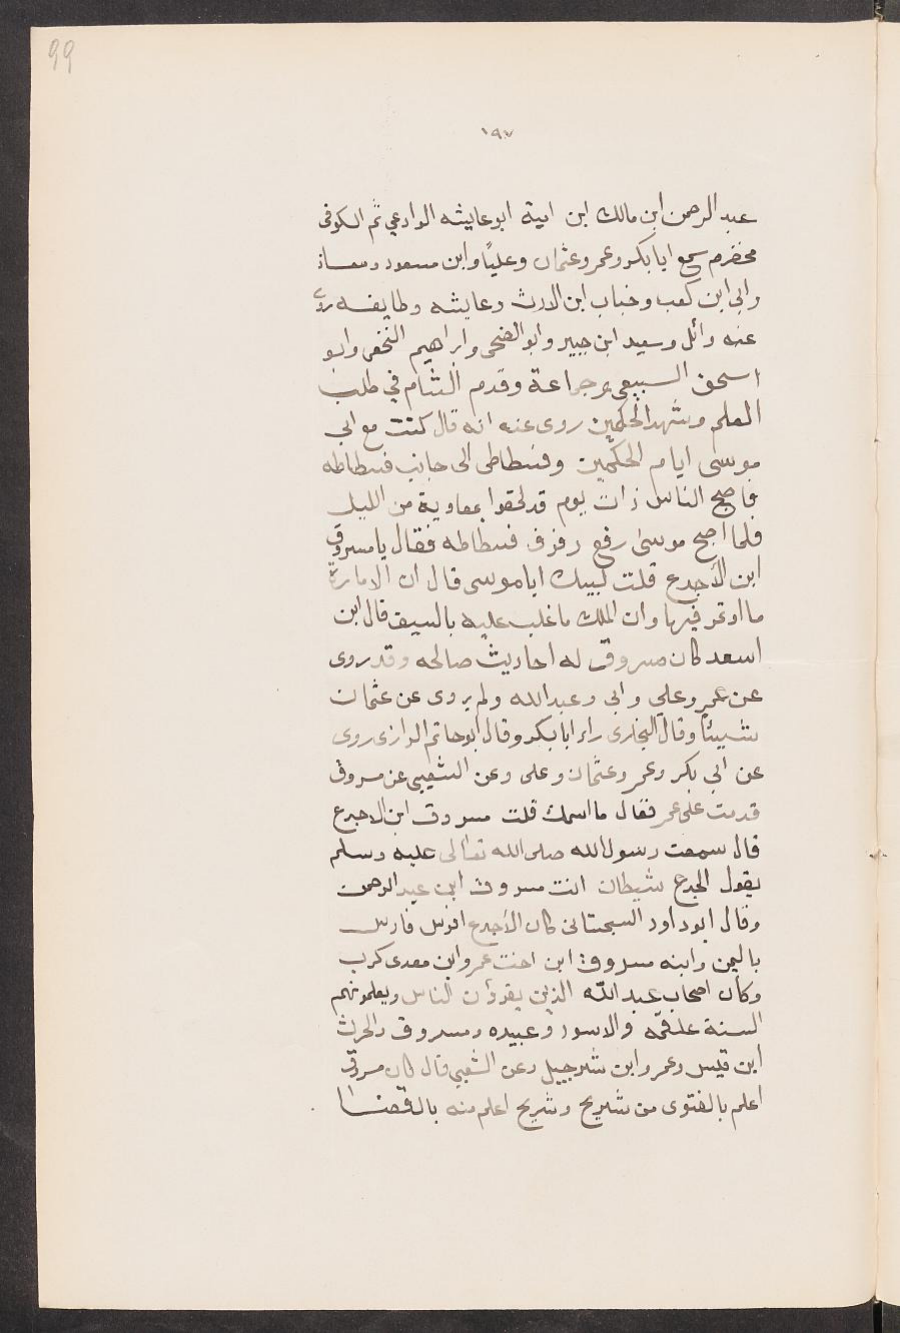 99
١٩٧
عبد الرحمن ابن مالك ابن امية ابو عايشه الوادعي ثم الكوفى
مخضرم سمع ابا بكر وعمر وعثمان وعليًا وابن مسعود ومعاذ
وابى ابن كعب وخباب ابن الارث وعايشه وطايفه روى
عنه وائل وسعيد ابن جبير وابو الضحى وابراهيم النخعى وابو
اسحق السبيعى وجماعة وقدم الشام في طلب
العلم وشهد الحكمين روى عنه انه قال كنت مع ابى
موسى ايام الحكمين وفسطاطى الى جانب فسطاطه
فاصبح الناس ذات يوم قد لحقوا بمعاوية من الليل
فلما اصبح موسى رفع رفرف فسطاطه فقال يا مسروق
ابن الأجدع قلت لبيك ابا موسى قال ان الامارة
ما اوتمر فيها وان الملك ما غلب عليه بالسيف قال ابن
اسعد كان مسروق له احاديث صالحه وقد روى
عن عمر وعلي وابى وعبد الله ولم يروى عن عثمان
شيئاً وقال البخارى راء ابا بكر وقال ابو حاتم الرازى روى
عن ابي بكر وعمر وعثمان وعلى وعن الشعبى عن مسروق
قدمت على عمر فقال ما اسمك قلت مسروق ابن الاجدع
قال سمعت رسول الله صلى الله تعالى عليه وسلم
يقول الجدع شيطان انت مسروق ابن عبد الرحمن
وقال ابو داود السجستانى كان الأجدع افرس فارس
باليمن وابنه مسروق ابن اخت عمرو ابن معدى كرب
وكان اصحاب عبد الله الذين يقرؤن الناس ويعلمونهم
السنة علقمه والاسود وعبيده ومسروق والحرث
ابن قيس وعمرو ابن شرجبيل وعن الشعبي قال كان مسروق
اعلم بالفتوى من شريح وشريح اعلم منه بالقضا